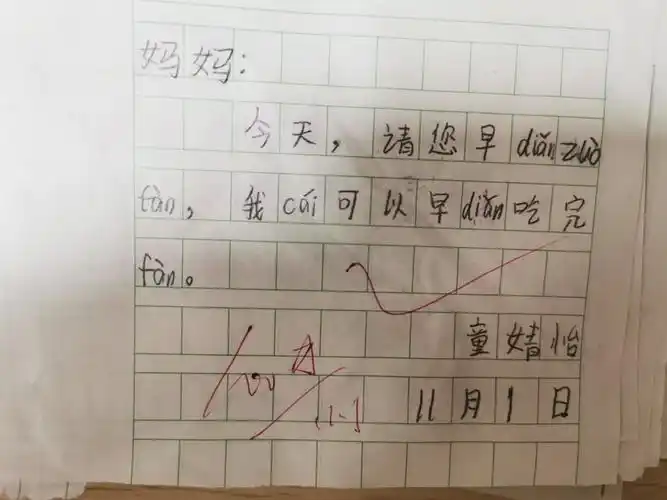 妈妈：
今天，请您早diǎnzuò
fàn，我cái可以早diǎn吃完
fàn。
童婧怡
100 A
11.1
11月1日